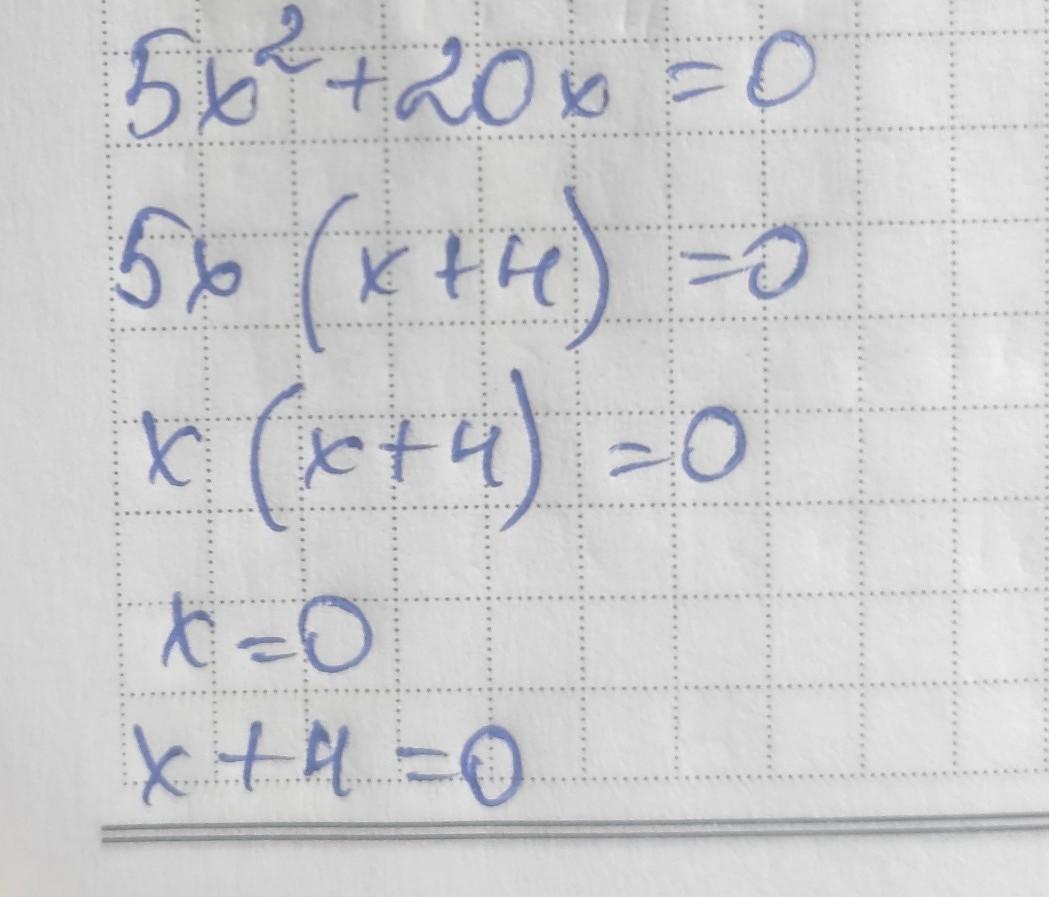 5x² + 20x = 0
5x (x + 4) = 0
x (x + 4) = 0
x = 0
x + 4 = 0